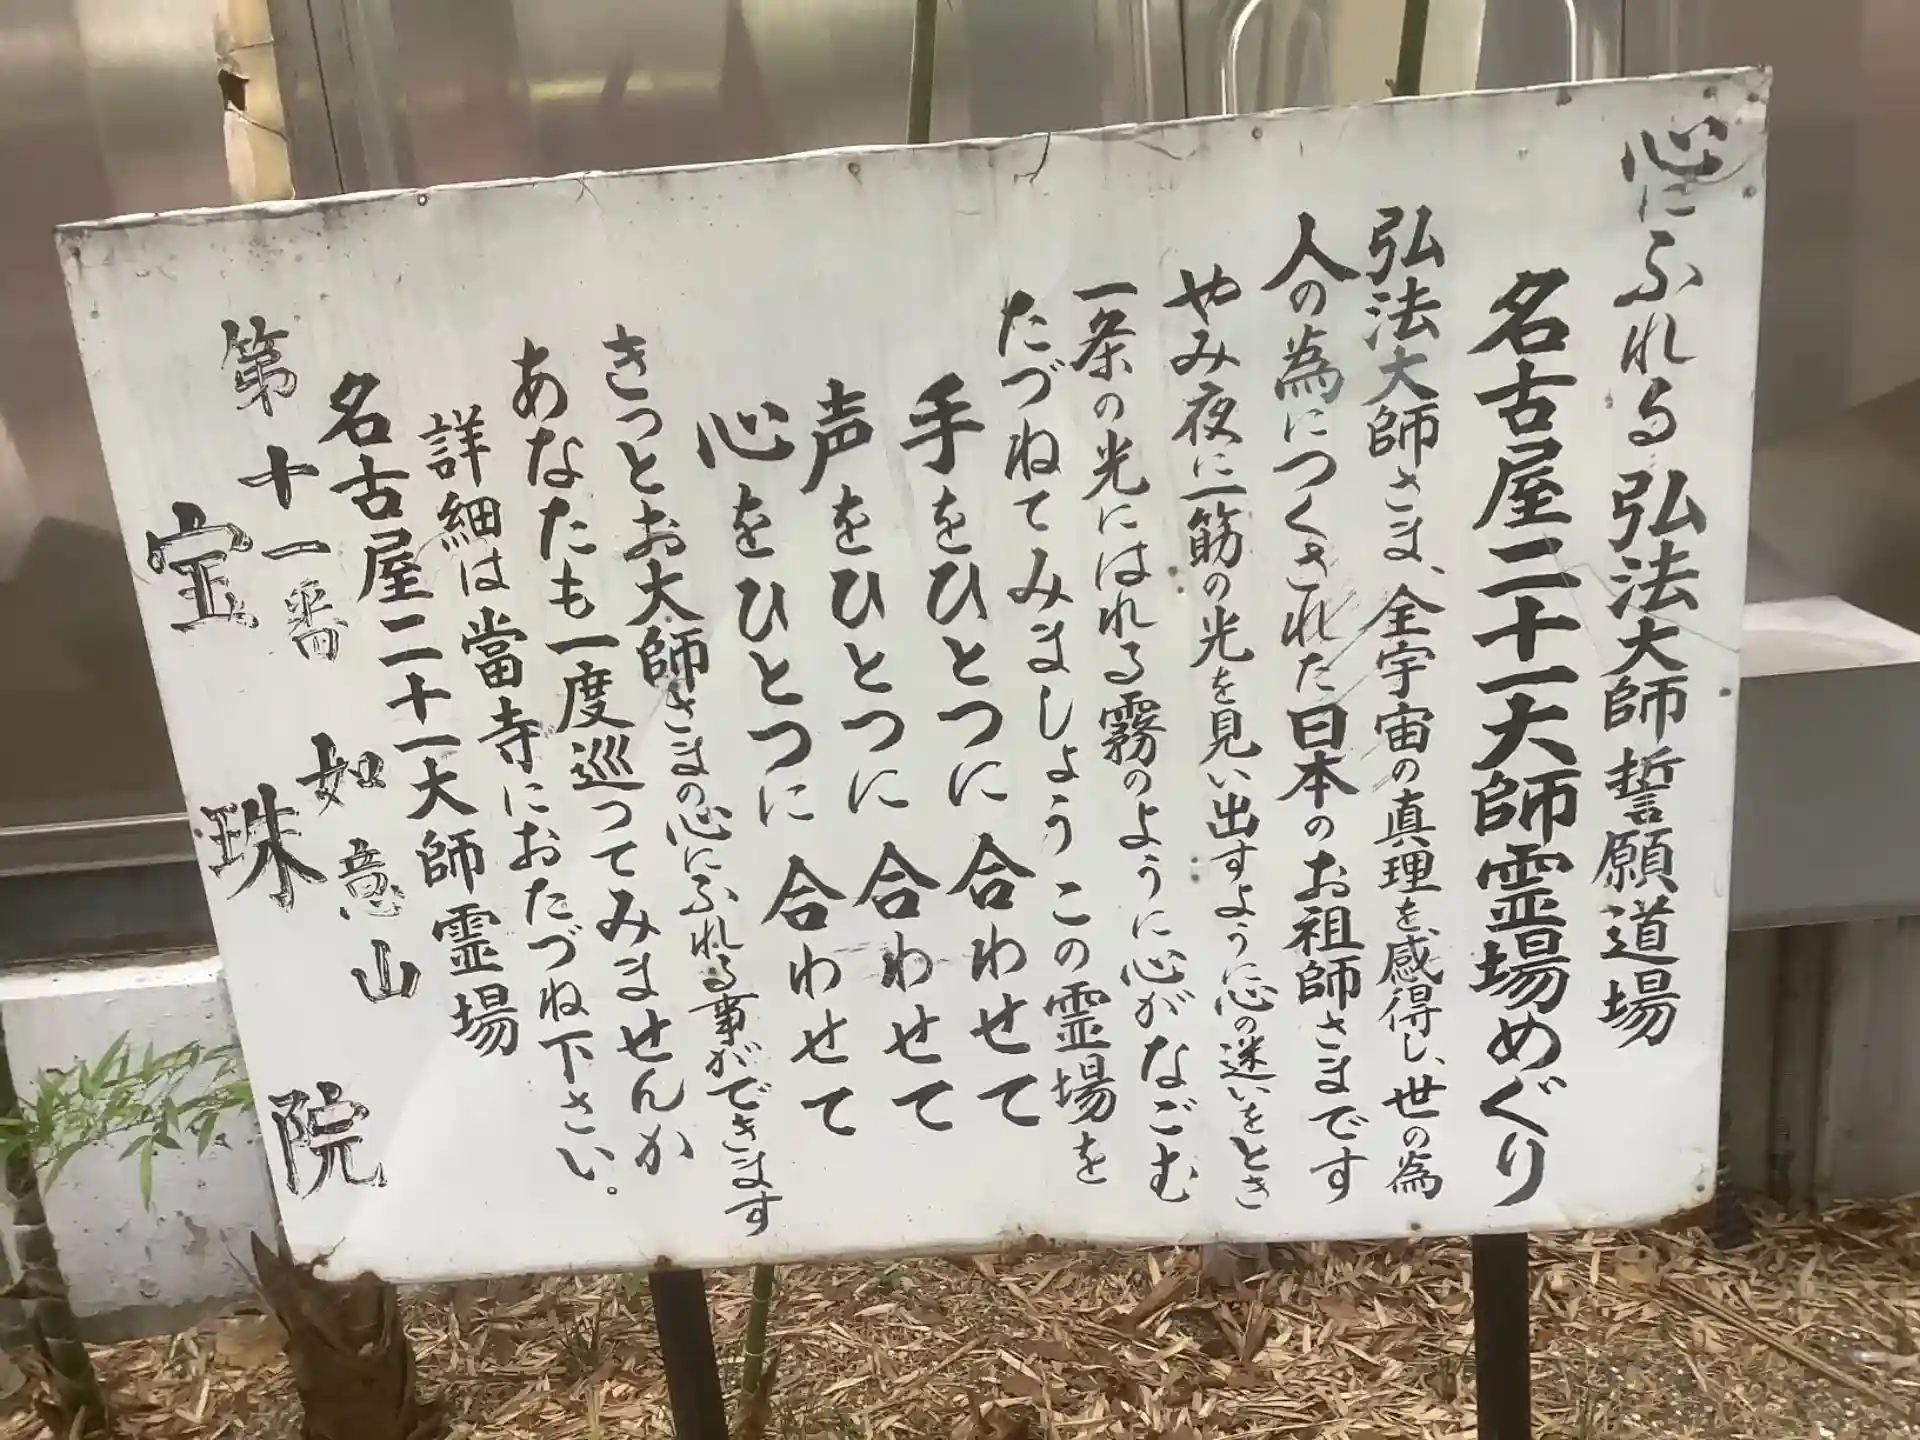 心にふれる弘法大師誓願道場
名古屋二十一大師霊場めぐり
弘法大師さま、全宇宙の真理を感得し、世の為
人の為につくされた日本のお祖師さまです
やみ夜に一筋の光を見い出すように心の迷いをとき
一条の光にはれる霧のように心がなごむ
たづねてみましょうこの霊場を
手をひとつに合わせて
声をひとつに合わせて
心をひとつに合わせて
きっとお大師さまの心にふれる事ができます
あなたも一度巡ってみませんか
詳細は當寺におたづね下さい。
名古屋二十一大師霊場
第十一番 如意山
宝珠院